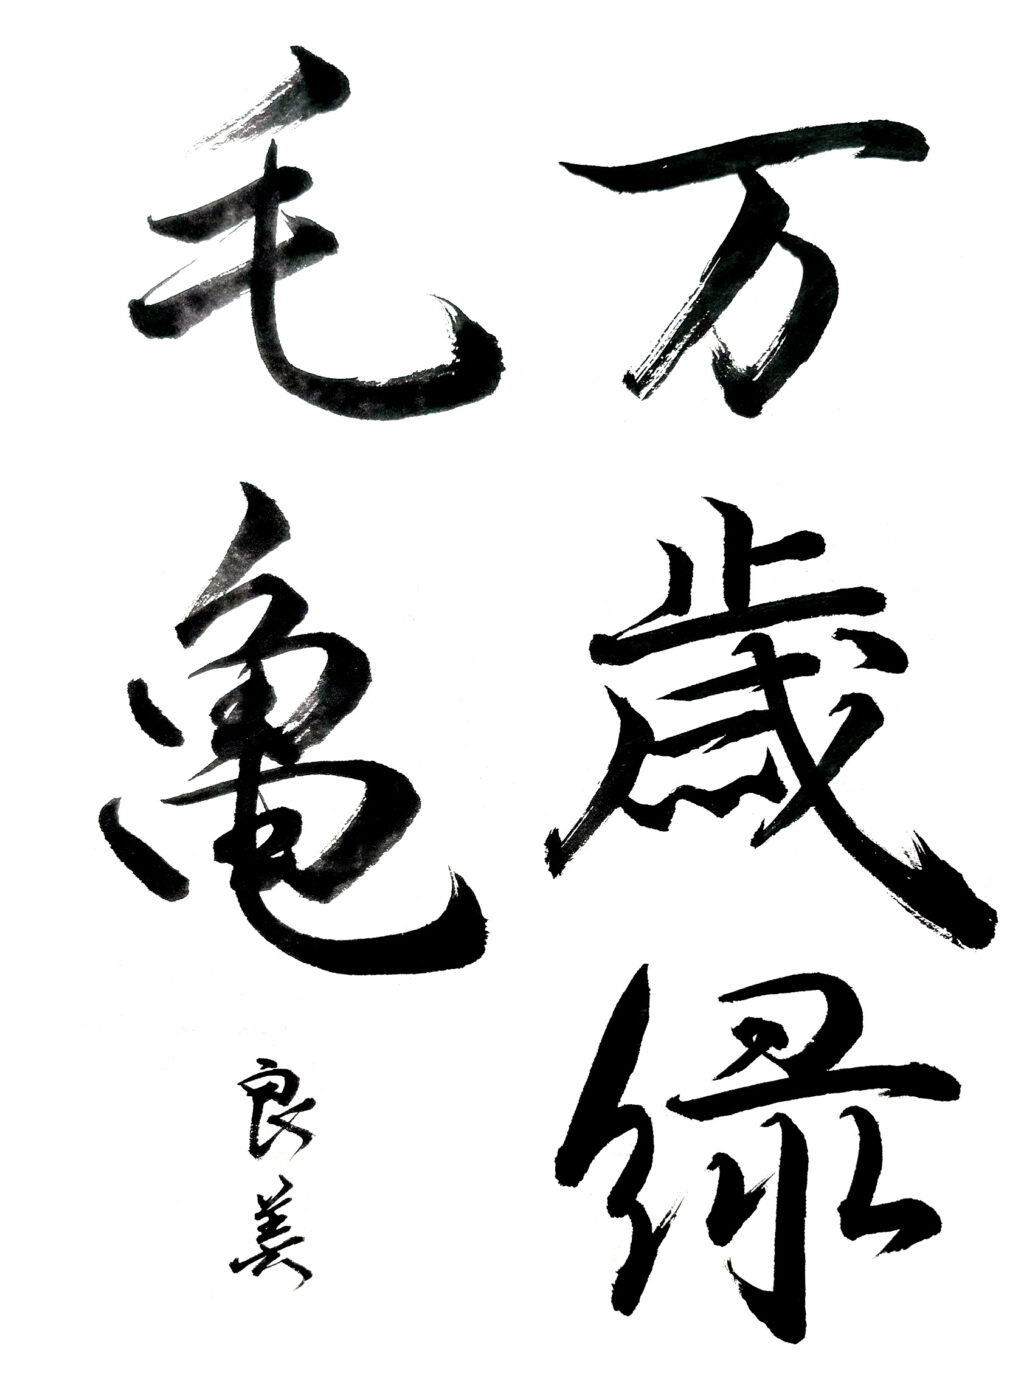 万歳緑
毛亀
良美